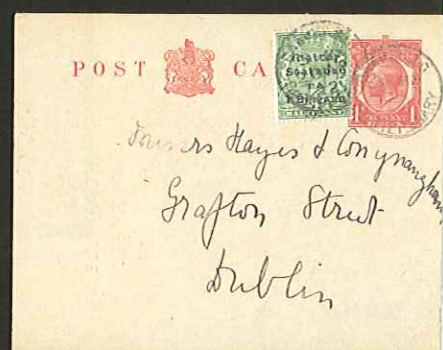 POST CA
Rialtas
Sealadaċ
na
hÉireann
ONE PENNY
1
Hayes & Conyngham
Grafton Street
Dublin